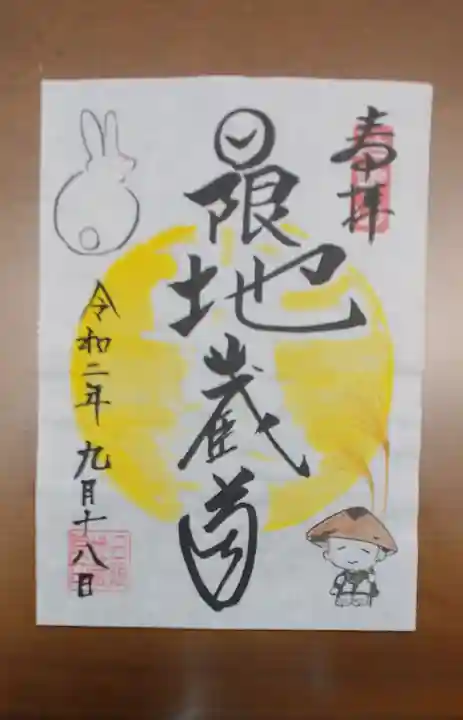 奉拝
日限地蔵尊
令和二年九月十八日